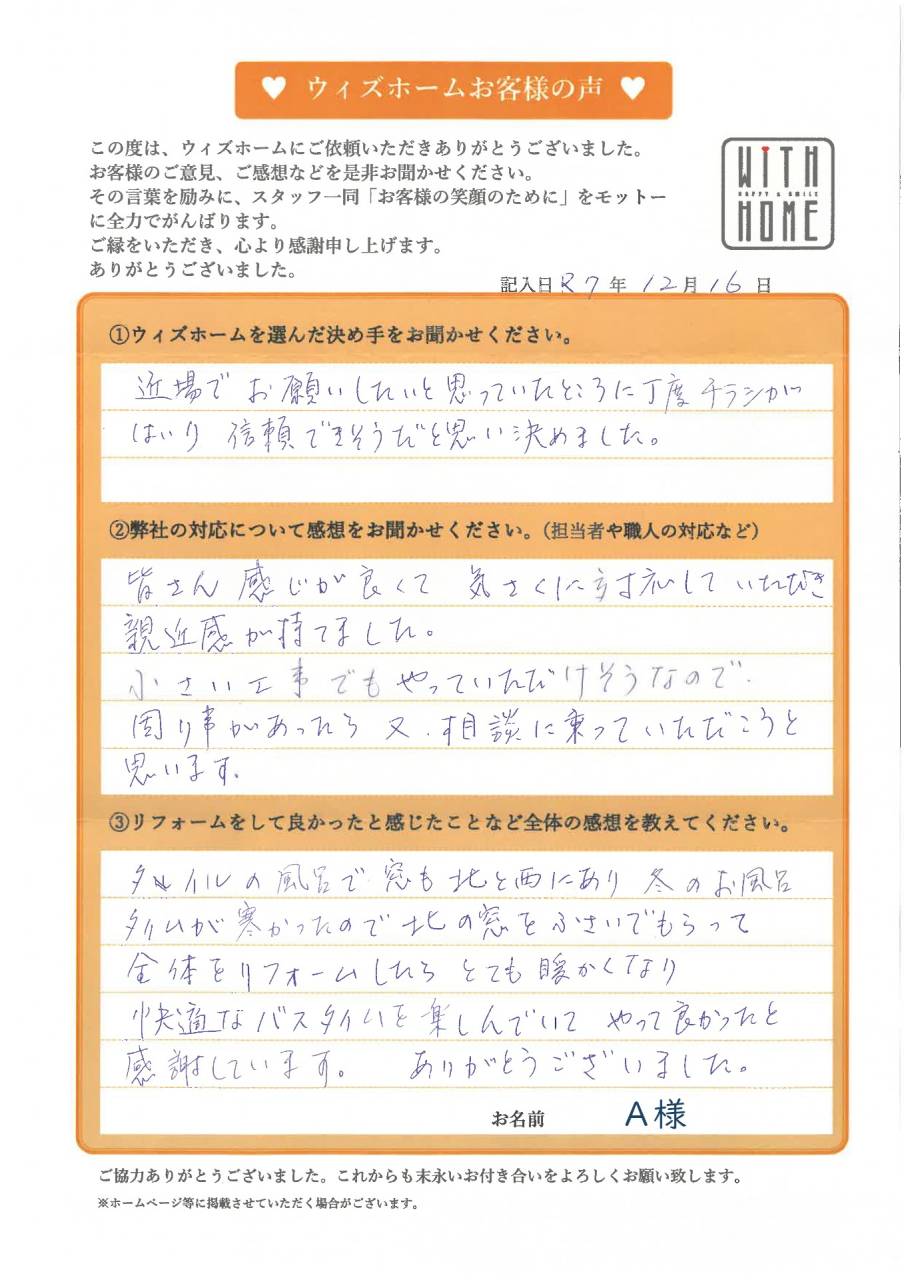 ♥ ウィズホームお客様の声 ♥
この度は、ウィズホームにご依頼いただきありがとうございました。
お客様のご意見、ご感想などを是非お聞かせください。
その言葉を励みに、スタッフ一同「お客様の笑顔のために」をモットー
に全力でがんばります。
ご縁をいただき、心より感謝申し上げます。
ありがとうございました。
WITH
HAPPY & SMILE
HOME
記入日 R7 年 12月 16 日
①ウィズホームを選んだ決め手をお聞かせください。
近場で お願いしたいと思っていたところに丁度チラシが
はいり 信頼できそうだと思い決めました。
②弊社の対応について感想をお聞かせください。(担当者や職人の対応など)
皆さん 感じが良くて 気さくに対応していただき
親近感が持てました。
小さい工事でもやっていただけそうなので
困り事があったら又、相談に乗っていただこうと
思います。
③リフォームをして良かったと感じたことなど全体の感想を教えてください。
タイルの風呂で窓も北と西にあり 冬のお風呂
タイムが寒かったので北の窓をふさいでもらって
全体をリフォームしたら とても暖かくなり
快適なバスタイムを楽しんでいて やって良かったと
感謝しています。 ありがとうございました。
お名前 A様
ご協力ありがとうございました。これからも末永いお付き合いをよろしくお願い致します。
※ホームページ等に掲載させていただく場合がございます。